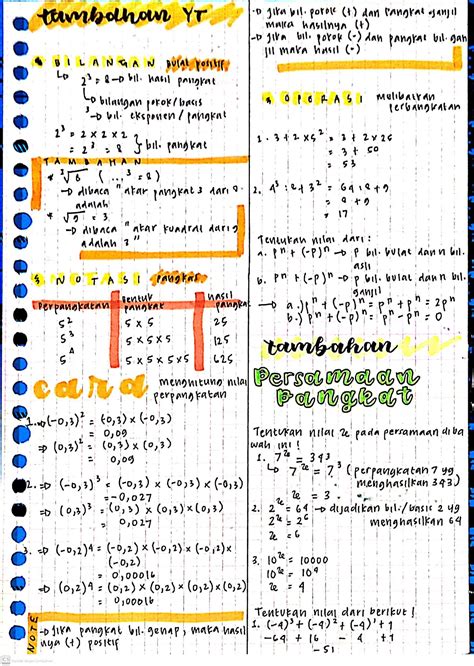 tambahan YT
BILANGAN bulat positif
↳ 2³ = 8 → bil. hasil pangkat
↳ bilangan pokok/basis
↳ bil. eksponen / pangkat
2³ = 2 x 2 x 2
= 2³ = 8 } bil. pangkat
TAMBAHAN
* ³√8 ( ...³ = 8 )
→ dibaca "akar pangkat 3 dari 8.
adalah
* √9 = 3
→ dibaca "akar kuadrat dari 9
adalah 3"
NOTASI pangkat
Perpangkatan Bentuk pangkat Hasil pangkat
5² 5 x 5 25
5³ 5 x 5 x 5 125
5⁴ 5 x 5 x 5 x 5 625
cara menghitung nilai
perpangkatan
1. ⇒ (-0,3)² = (-0,3) x (-0,3)
= 0,09
⇒ (0,3)² = (0,3) x (0,3)
= 0,09
2. ⇒ (-0,3)³ = (-0,3) x (-0,3) x (-0,3)
= -0,027
⇒ (0,3)³ = (0,3) x (0,3) x (0,3)
= 0,027
3. ⇒ (-0,2)4 = (-0,2) x (-0,2) x (-0,2) x
(-0,2)
= 0,00016
⇒ (0,2)4 = (0,2) x (0,2) x (0,2) x (0,2)
= 0,00016
NOTE
→ jika pangkat bil. genap, maka hasil
nya (+) positif
→ jika bil. pokok (+) dan pangkat ganjil
maka hasilnya (+)
→ jika bil. pokok (-) dan pangkat bil. gan
jil maka hasil (-)
OPERASI melibatkan
perbangkatan
1. 3 + 2 x 5² = 3 + 2 x 25
= 3 + 50
= 53
2. 4³ : 8 + 3² = 64 : 8 + 9
= 8 + 9
= 17
Tentukan nilai dari :
a. pⁿ + (-p)ⁿ → p bil. bulat dan n bil.
asli
b. pⁿ + (-p)ⁿ → p bil. bulat dan n bil.
ganjil
→ a.) pⁿ + (-p)ⁿ = pⁿ + pⁿ = 2pⁿ
b.) pⁿ + (-p)ⁿ = pⁿ - pⁿ = 0
tambahan
Persamaan
Pangkat
Tentukan nilai x pada persamaan diba
wah ini !
1. 7ˣ = 343
↳ 7ˣ = 7³ (perpangkatan 7 yg
menghasilkan 343)
x = 3
2. 2ˣ = 64 → dijadikan bil./basic 2 yg
2ˣ = 2⁶ menghasilkan 64
x = 6
3. 10ˣ = 10000
10ˣ = 10⁴
x = 4
Tentukan nilai dari berikut !
1. (-4)³ + (-4)² + (-4)¹ + 1
-64 + 16 - 4 + 1
-51